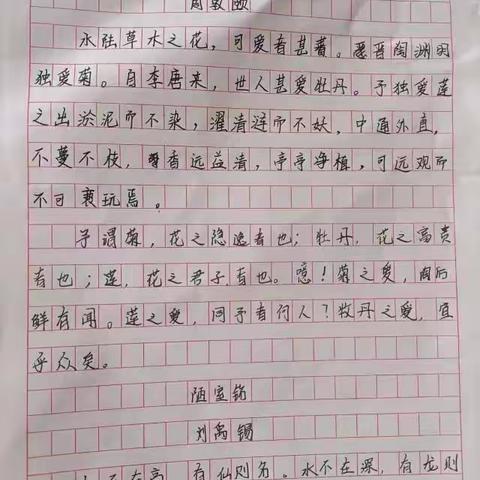 周敦颐
水陆草木之花，可爱者甚蕃。晋陶渊明
独爱菊。自李唐来，世人甚爱牡丹。予独爱莲
之出淤泥而不染，濯清涟而不妖，中通外直，
不蔓不枝，香远益清，亭亭净植，可远观而
不可亵玩焉。
予谓菊，花之隐逸者也；牡丹，花之富贵
者也；莲，花之君子者也。噫！菊之爱，陶后
鲜有闻。莲之爱，同予者何人？牡丹之爱，宜
乎众矣。
陋室铭
刘禹锡
山不在高，有仙则名。水不在深，有龙则